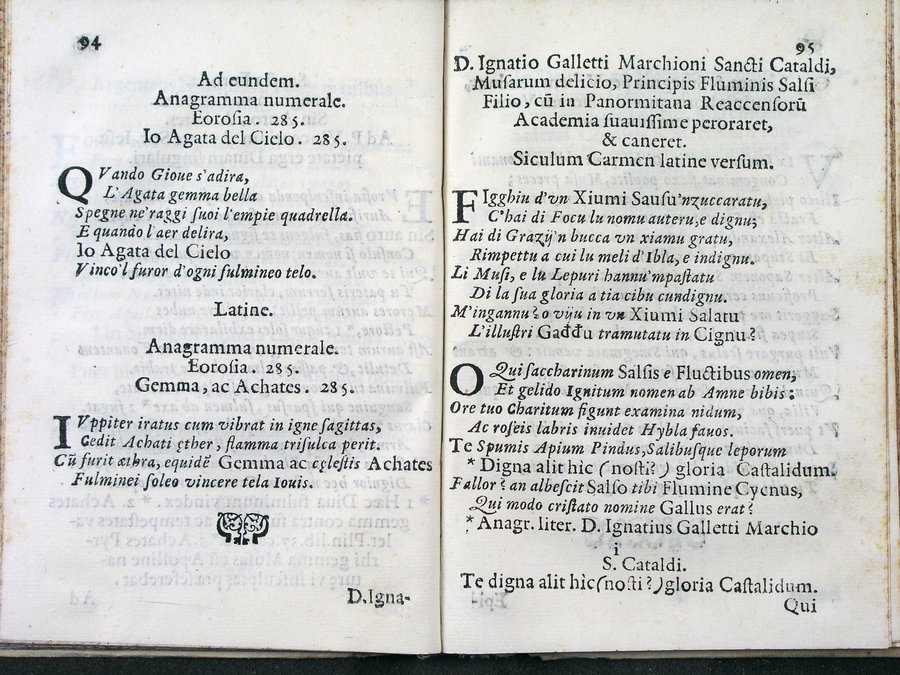 94
Ad eundem.
Anagramma numerale.
Eorosia. 285.
Io Agata del Cielo. 285.
QVando Gioue s'adira,
L'Agata gemma bella
Spegne ne'raggi ſuoi l'empie quadrella.
E quando l'aer delira,
Io Agata del Cielo
Vinco'l furor d'ogni fulmineo telo.
Latine.
Anagramma numerale.
Eorosia. 285.
Gemma, ac Achates. 285.
IVppiter iratus cum vibrat in igne ſagittas,
Cedit Achati ęther, flamma triſulca perit.
Cū furit æthra, equidē Gemma ac cęleſtis Achates
Fulminei ſoleo vincere tela Iouis.
D.Igna-
95
D. Ignatio Galletti Marchioni Sancti Cataldi,
Muſarum delicio, Principis Fluminis Salſi
Filio, cū in Panormitana Reaccenſorū
Academia ſuauiſſime peroraret,
& caneret.
Siculum Carmen latine verſum.
FIgghiu d'vn Xiumi Sauſu'nzuccaratu,
C'hai di Focu lu nomu auteru, e dignu;
Hai di Grazij'n bucca vn xiamu gratu,
Rimpettu a cui lu meli d'Ibla, e indignu.
Li Muſi, e lu Lepuri hannu'mpaſtatu
Di la ſua gloria a tia cibu cundignu.
M'ingannu? o viju in vn Xiumi Salatu
L'illuſtri Gađđu tramutatu in Cignu?
O Qui ſaccharinum Salſis e Fluctibus omen,
Et gelido Ignitum nomen ab Amne bibis:
Ore tuo Charitum figunt examina nidum,
Ac roſeis labris inuidet Hybla fauos.
Te Spumis Apium Pindus, Salibuſque leporum
* Digna alit hic (noſti?) gloria Caſtalidum.
Fallor? an albeſcit Salſo tibi Flumine Cycnus,
Qui modo criſtato nomine Gallus erat?
* Anagr. liter. D. Ignatius Galletti Marchio
i
S. Cataldi.
Te digna alit hic (noſti?) gloria Caſtalidum.
Qui